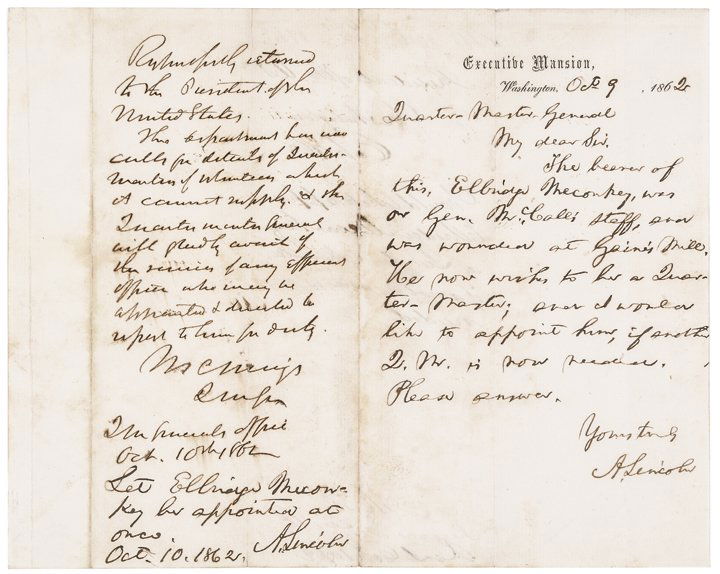 Executive Mansion,
Washington, Oct 9, 1862
Quarter-Master General
My dear Sir.
The bearer of
this, Ellbridge Meconkey, was
on Gen. McCall's staff, and
was wounded at Gain's Mill.
He now wishes to be a Quar-
ter-Master; and I would
like to appoint him, if another
Q. M. is now needed.
Please answer.
Yours truly
A. Lincoln
Respectfully returned
to the President of the
United States.
This department has now
calls for details of Quarter-
masters of volunteers which
it cannot supply. & the
Quartermaster General
will gladly avail of
the services of any efficient
officer who may be
appointed & directed to
report to him for duty.
M C Meigs
QMGen
QM Generals office
Oct. 10th 1862
Let Ellbridge Mecon-
key be appointed at
once.
A. Lincoln
Oct. 10. 1862.